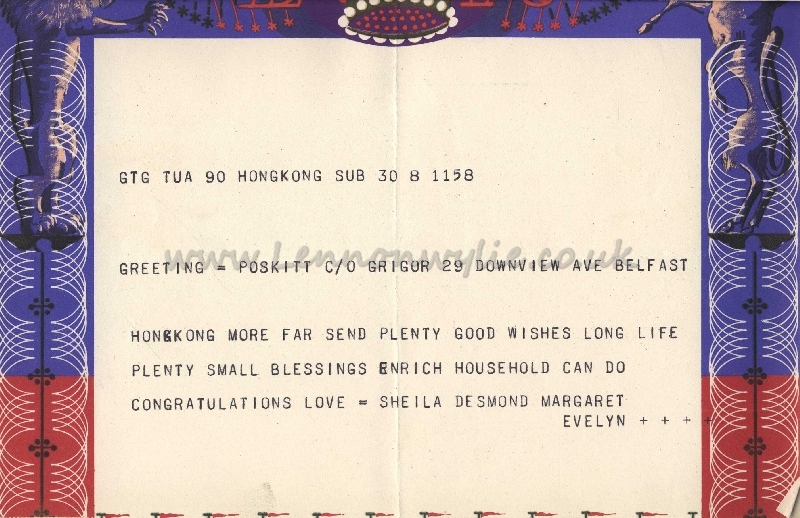 GTG TUA 90 HONGKONG SUB 30 8 1158
www.Lennonwylie.co.uk
GREETING = POSKITT C/O GRIGOR 29 DOWNVIEW AVE BELFAST
HONGKONG MORE FAR SEND PLENTY GOOD WISHES LONG LIFE
PLENTY SMALL BLESSINGS ENRICH HOUSEHOLD CAN DO
CONGRATULATIONS LOVE = SHEILA DESMOND MARGARET
EVELYN + + + +